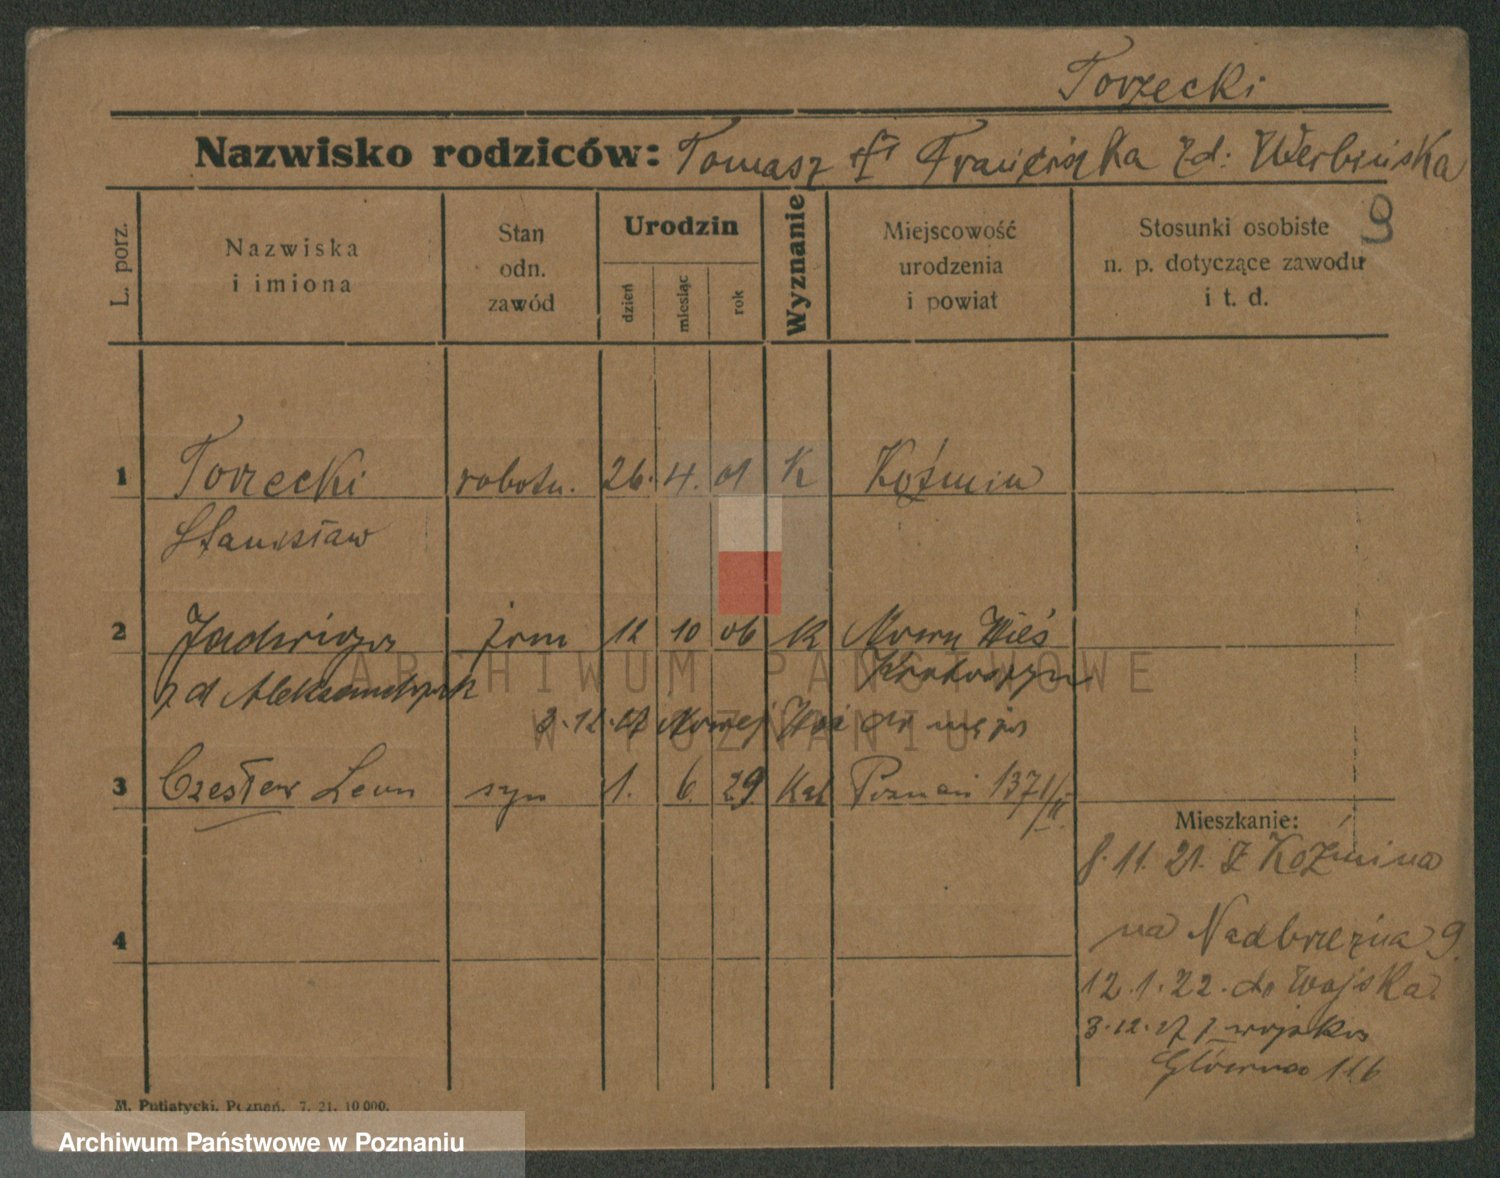 Torzecki
Nazwisko rodziców: Tomasz i Franciszka zd. Werbińska
9
L. porz.
Nazwiska
i imiona
Stan
odn.
zawód
Urodzin
dzień
miesiąc
rok
Wyznanie
Miejscowość
urodzenia
i powiat
Stosunki osobiste
n. p. dotyczące zawodu
i t. d.
1 Torzecki robotn. 26. 4. 01 K Koźmin
Stanisław
2 Jadwiga żona 12 10 06 K Nowa Wieś
Krotoszyn
z d Aleksandrzak
3.12.27 Nowej Wsi do męża
3 Czesław Leon syn 1. 6. 29 Kat Poznań 1371/II
Mieszkanie:
8.11.21. z Koźmina
na Nadbrzeżna 9.
4
12.1.22. do Wojska.
3.12.27 z wojska
Główna 116
M. Putiatycki, Poznań. 7. 21. 10 000.
ARCHIWUM PAŃSTWOWE
W POZNANIU
Archiwum Państwowe w Poznaniu